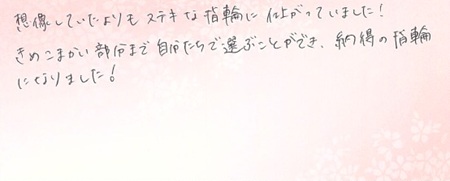 想像していたよりも ステキな指輪に仕上がっていました!
きめこまかい部分まで自分たちで選ぶことができ、納得の指輪
になりました!